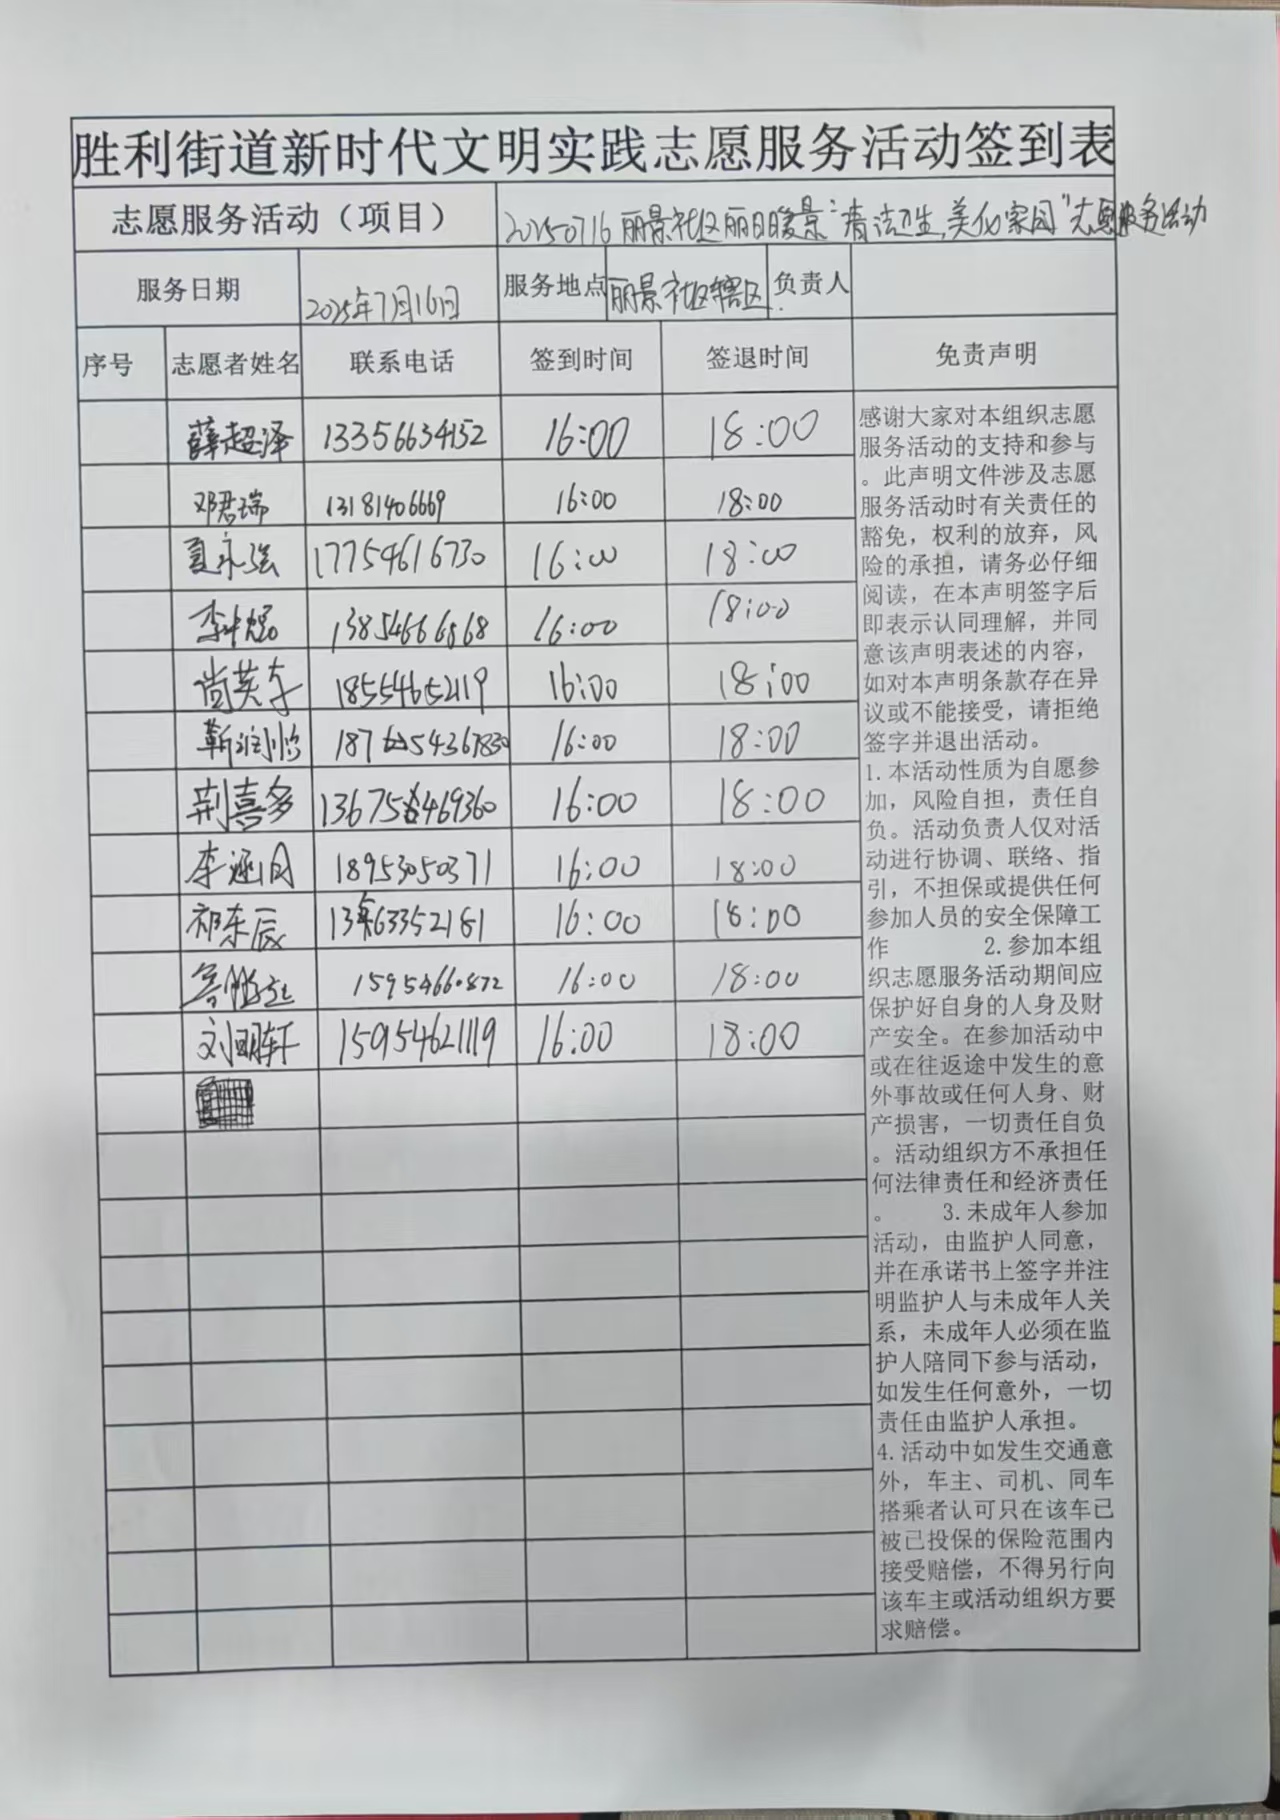 胜利街道新时代文明实践志愿服务活动签到表
志愿服务活动（项目） 20250716丽景社区丽日暖景“清洁卫生,美化家园”志愿服务活动
服务日期 2025年7月16日 服务地点 丽景社区辖区. 负责人
序号 志愿者姓名 联系电话 签到时间 签退时间 免责声明
薛超泽 13356634152 16:00 18:00
邓君瑞 13181406669 16:00 18:00
夏永强 17754616730 16:00 18:00
13854666868 16:00 18:00
尚英东 18554652119 16:00 18:00
16:00 18:00
荆喜多 16:00 18:00
李涵日 18953050371 16:00 18:00
祁东辰 16:00 18:00
15954660872 16:00 18:00
刘明轩 15954621119 16:00 18:00
感谢大家对本组织志愿
服务活动的支持和参与
。此声明文件涉及志愿
服务活动时有关责任的
豁免，权利的放弃，风
险的承担，请务必仔细
阅读，在本声明签字后
即表示认同理解，并同
意该声明表述的内容，
如对本声明条款存在异
议或不能接受，请拒绝
签字并退出活动。
1.本活动性质为自愿参
加，风险自担，责任自
负。活动负责人仅对活
动进行协调、联络、指
引，不担保或提供任何
参加人员的安全保障工
作 2.参加本组
织志愿服务活动期间应
保护好自身的人身及财
产安全。在参加活动中
或在往返途中发生的意
外事故或任何人身、财
产损害，一切责任自负
。活动组织方不承担任
何法律责任和经济责任
。 3.未成年人参加
活动，由监护人同意，
并在承诺书上签字并注
明监护人与未成年人关
系，未成年人必须在监
护人陪同下参与活动，
如发生任何意外，一切
责任由监护人承担。
4.活动中如发生交通意
外，车主、司机、同车
搭乘者认可只在该车已
被已投保的保险范围内
接受赔偿，不得另行向
该车主或活动组织方要
求赔偿。